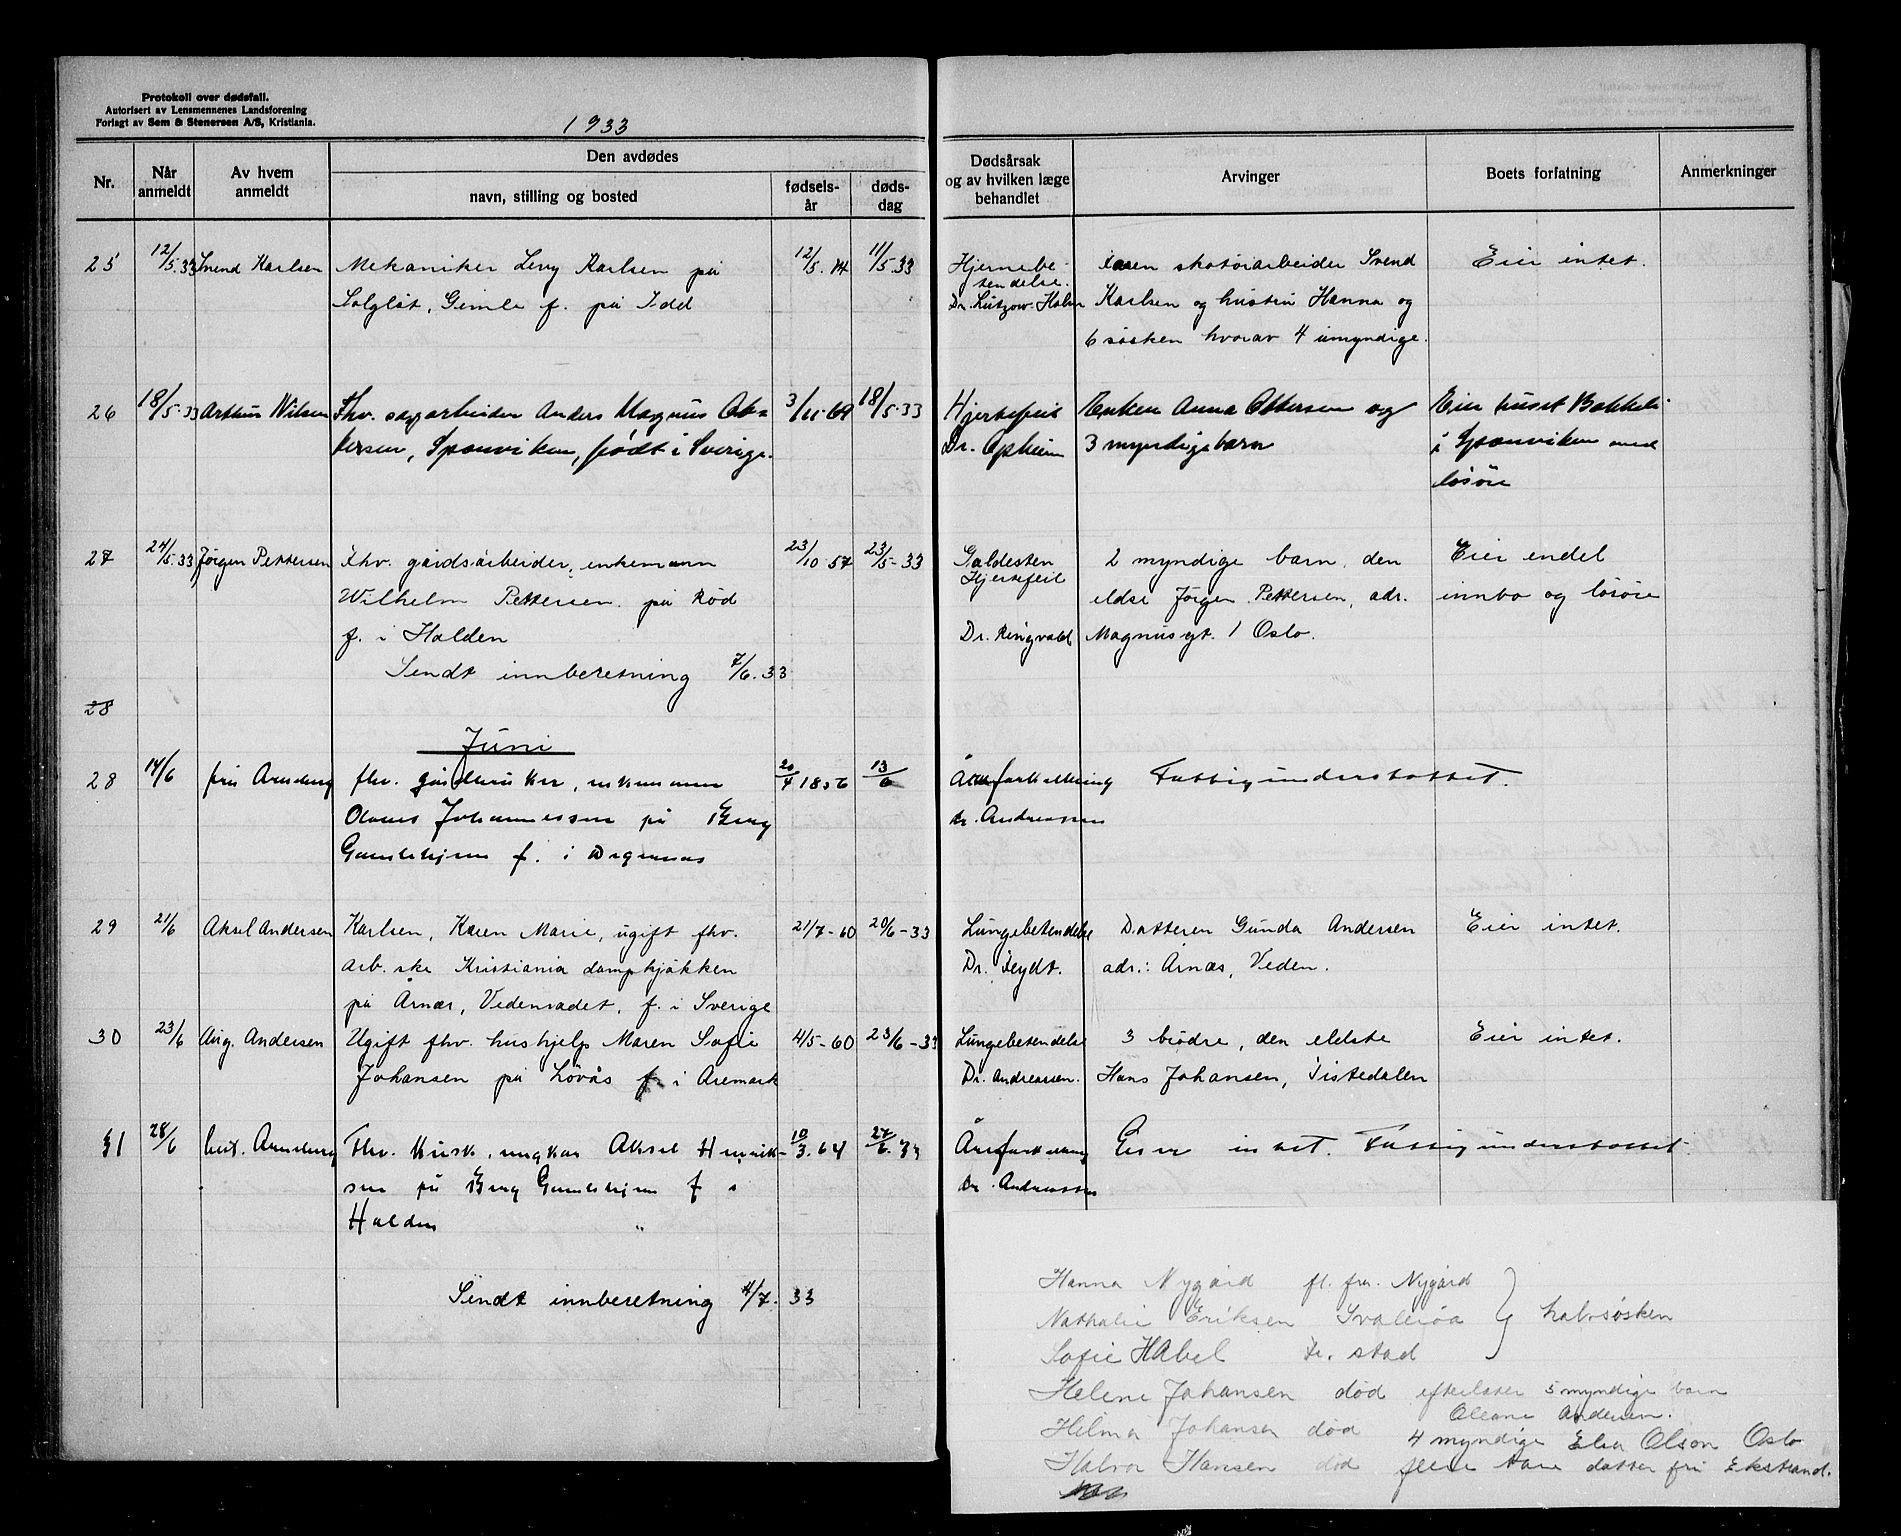 Protokoll over dødsfall.
Autorisert av Lensmennenes Landsforening
Forlagt av Sem & Stenersen A/S, Kristiania.
1933
Nr.
Når anmeldt
Av hvem anmeldt
Den avdødes
navn, stilling og bosted
fødsels-år
døds-dag
Dødsårsak og av hvilken læge behandlet
Arvinger
Boets forfatning
Anmerkninger
25 12/5.33 Svend Karlsen Mekaniker Levy Karlsen på 12/5.14 11/5.33 Hjernebe- skotøiarbeider Svend Eier intet.
Solgløt, Gimle f. på Idd tendelse. Karlsen og hustru Hanna og
Dr. Lützow-Holm 6 søsken hvorav 4 umyndige.
26 18/5.33 Arthur Nilsen Fhv. sagarbeider Anders Magnus 3/11-64 18/5.33 Hjertefeil Enken Anna Ottersen og Eier huset Bakkeli
Sponviken, født i Sverige. Dr. Opheim 3 myndige barn i Sponviken med
løsøre
27 24/5.33 Jørgen Pettersen Fhv. gårdsarbeider, enkemann 23/10 57 23/5-33 Galdesten 2 myndige barn, den Eier endel
Wilhelm Pettersen på Rød Hjertefeil eldse Jørgen Pettersen, adr. innbo og løsøre
f. i Halden Dr. Ringvold Magnusgt. 1 Oslo.
Sendt innberetning 7/6.33
28
Juni
28 14/6 frk Arnsberg fhv. gårdbruker, enkemann 20/4 1856 13/6 Åreforkalkning Fattigunderstøttet.
Johannessen på Berg Dr. Andreassen
Gamlehjem f. i
29 21/6 Aksel Andersen Karlsen, Karen Marie, ugift fhv. 21/7-60 20/6-33 Lungebetendelse Datteren Gunda Andersen Eier intet.
arb.ske Kristiania dampkjøkken Dr. adr.: Årnæs, Veden.
på Årnæs, Vedensødet, f. i Sverige
30 23/6 Aug. Andersen Ugift fhv. hushjelp Maren Sofie 4/5-60 23/6-33 Lungebetendelse 3 brødre, den eldste Eier intet.
Johansen på Løvås f. i Aremark Dr. Andreassen. Hans Johansen, Tistedalen
31 28/6 Arnsberg Fhv. kusk, ungkar Aksel Henrik- 10/3.64 27/6.33 Åreforkalkning Eier intet. Fattigunderstøttet.
sen på Berg Gamlehjem f i Dr. Andreassen
Halden "
Sendt innberetning 4/7.33
Hanna Nygård fl. fru. Nygård
Nathalie Eriksen Svalerøa } halvsøsken
Sofie HAbel Fr. stad
Helene Johansen død efterlater 5 myndige barn
Oleane Andersen.
Hilma Johansen død 4 myndige Elsa Olson Oslo
Halvor Hansen død flere barn datter fru Ekstrand.